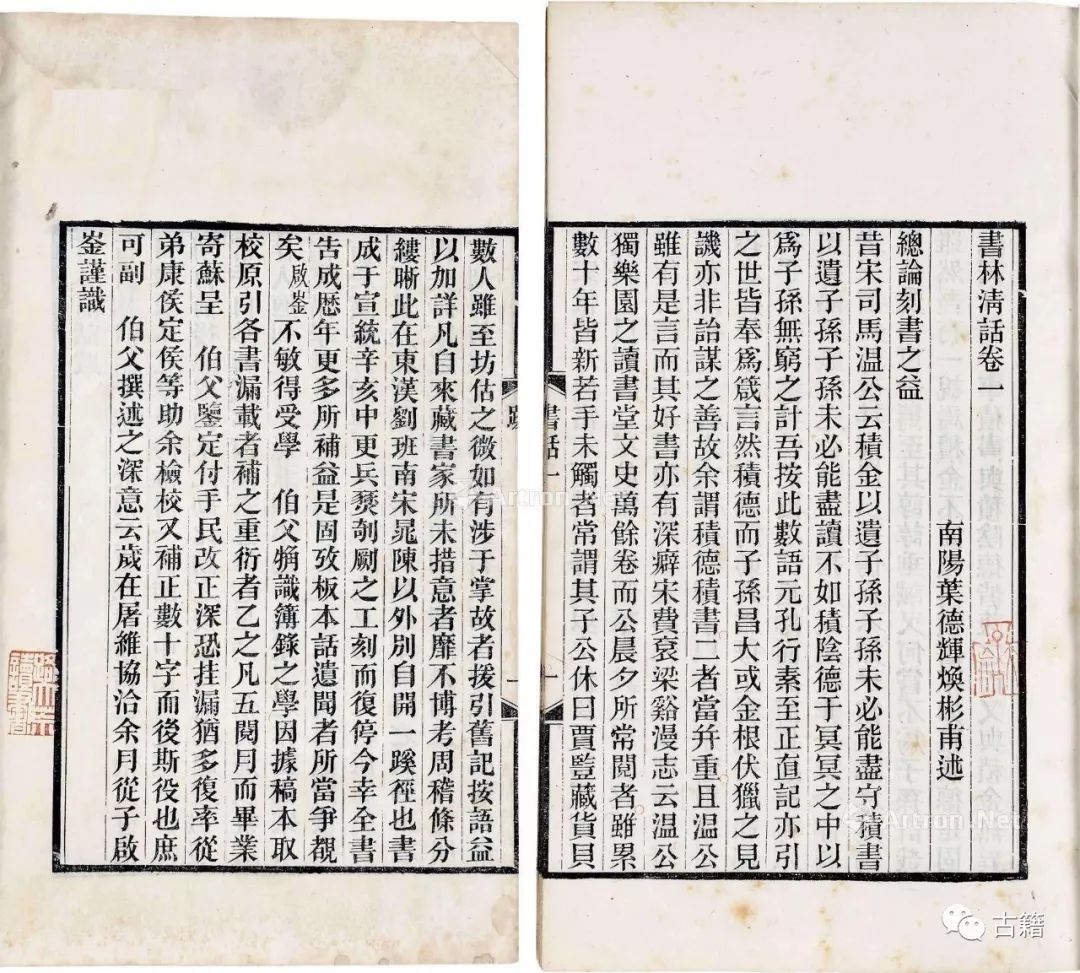 書林清話卷一
南陽葉德輝煥彬甫述
總論刻書之益
昔宋司馬溫公云積金以遺子孫子孫未必能盡守積書
以遺子孫子孫未必能盡讀不如積陰德于冥冥之中以
爲子孫無窮之計吾按此數語元孔行素至正直記亦引
之世皆奉爲箴言然積德而子孫昌大或金根伏獵之見
譏亦非詒謀之善故余謂積德積書二者當幷重且温公
雖有是言而其好書亦有深癖宋費袞梁谿漫志云温公
獨樂園之讀書堂文史萬餘卷而公晨夕所常閲者雖累
數十年皆新若手未觸者常謂其子公休曰賈豎藏貨貝
書話一
一
跋
一
數人雖至坊估之微如有涉于掌故者援引舊記按語益
以加詳凡自來藏書家所未措意者靡不博考周稽條分
縷晰此在東漢劉班南宋晁陳以外別自開一蹊徑也書
成于宣統辛亥中更兵燹剞劂之工刻而復停今幸全書
告成歷年更多所補益是固攷板本話遺聞者所當爭覩
矣啟崟不敏得受學 伯父觕識簿錄之學因據稿本取
校原引各書漏載者補之重衍者乙之凡五閱月而畢業
寄蘇呈 伯父鑒定付手民改正深恐挂漏猶多復率從
弟康侯定侯等助余檢校又補正數十字而後斯役也庶
可副 伯父撰述之深意云歲在屠維協洽余月從子啟
崟謹識
Artron.Net
古籍